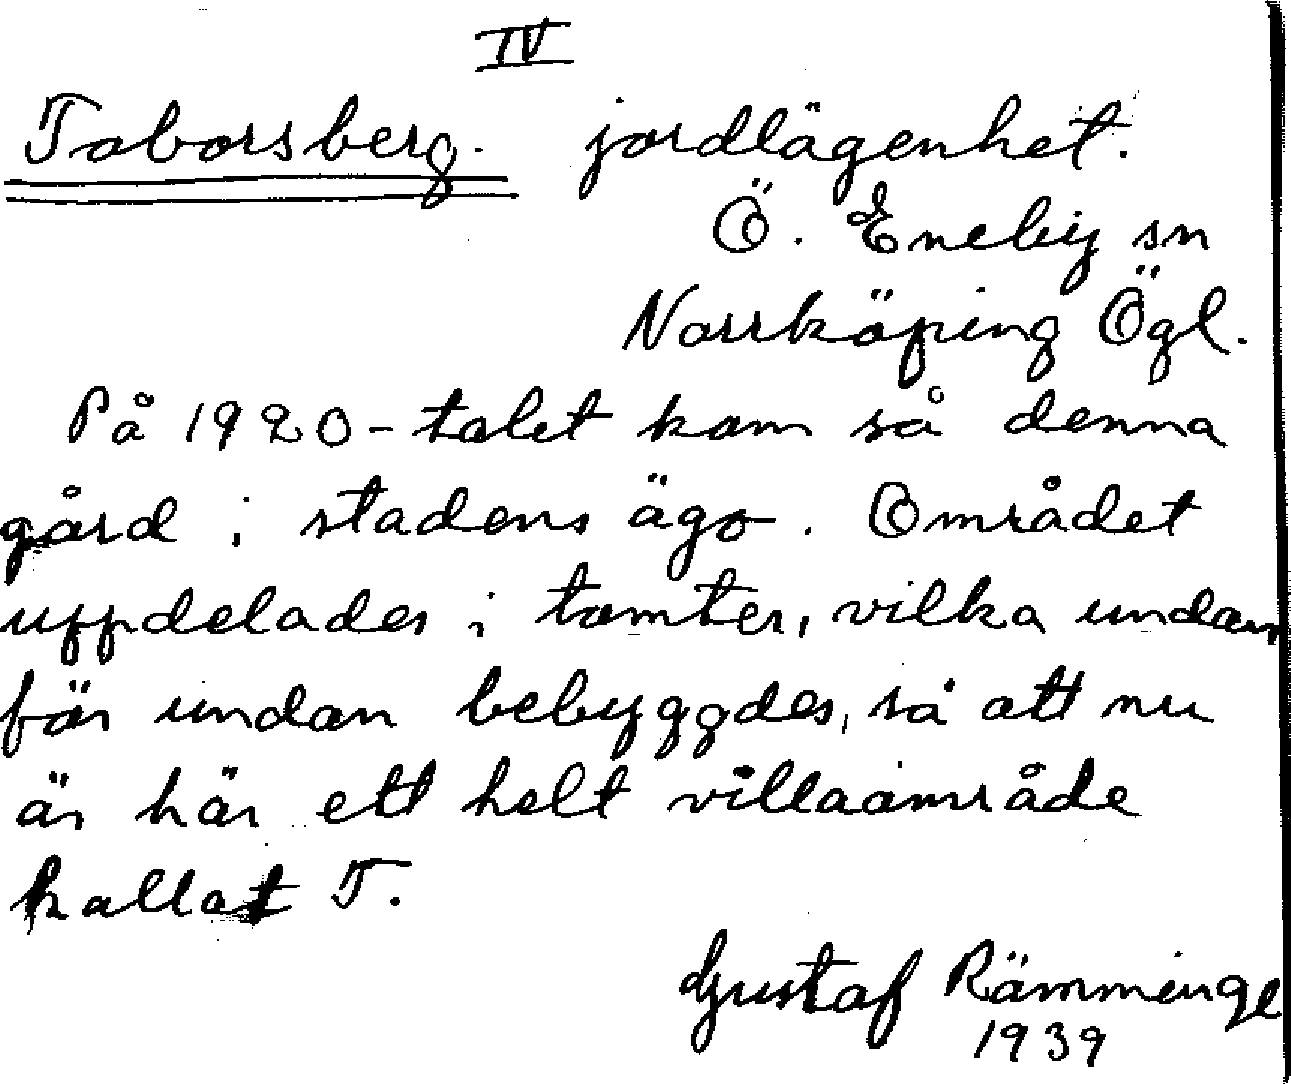 IV
Taborsberg. jordlägenhet.
Ö. Eneby sn
Norrköping Ögl.
På 1920-talet kom så denna
gård i stadens ägo. Området
uppdelades i tomter, vilka undan
för undan bebyggdes, så att nu
är här ett helt villaområde
kallat T.
Gustaf Rämminge
1939